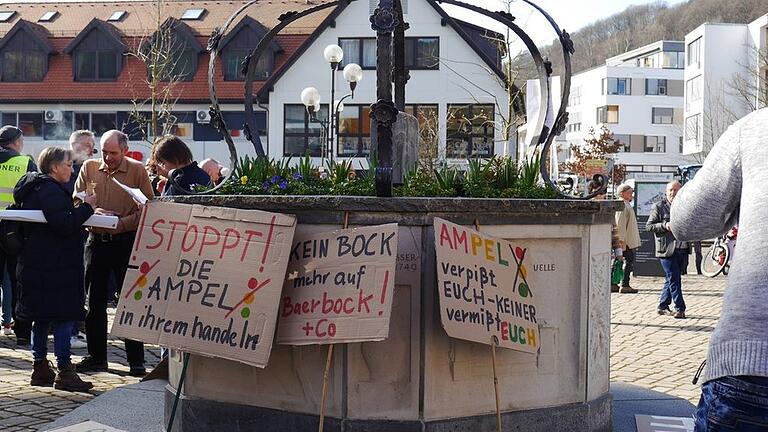 !STOPPT!
DIE
AMPEL
in ihrem handeln
KEIN BOCK
mehr auf
Baerbock!
+Co
AMPEL
verpißt
EUCH-KEINER
vermißt EUCH
1740
UELLE